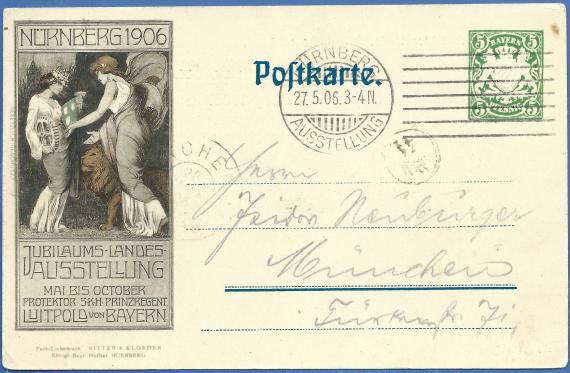 NÜRNBERG 1906
JUBILÄUMS-LANDES-
AUSSTELLUNG
MAI BIS OCTOBER
PROTEKTOR S.K.H. PRINZREGENT
LUITPOLD VON BAYERN
RITTER & KLOEDEN
Königl. Bayr. Hoflief. NÜRNBERG
Postkarte.
NÜRNBERG
27.5.06.3-4N.
AUSSTELLUNG
5 BAYERN 5
5 PFENNIG 5
Herrn
Isidor Neuburger
München